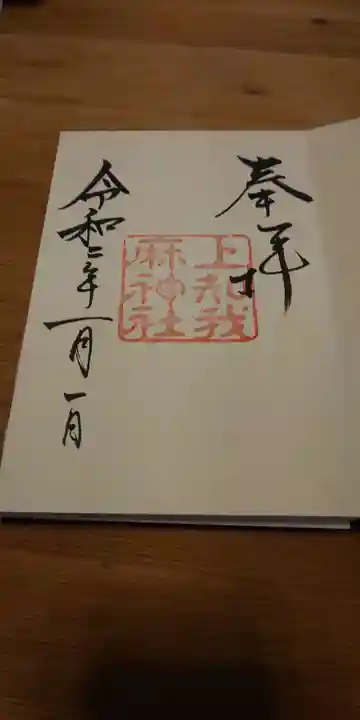 奉拝
上知我
麻神社
令和二年一月一日